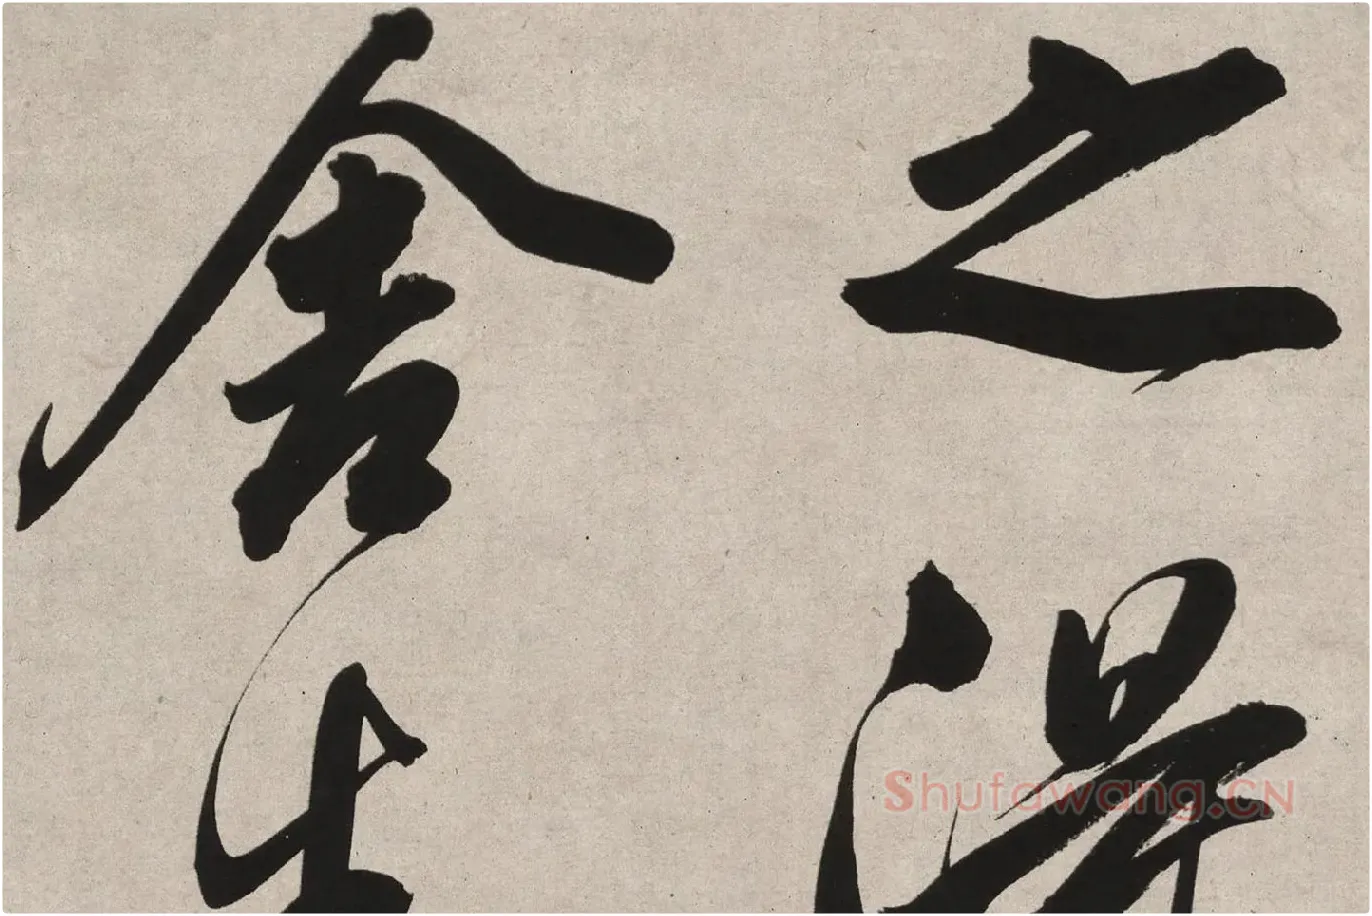 之得
舍
Shufawang.CN